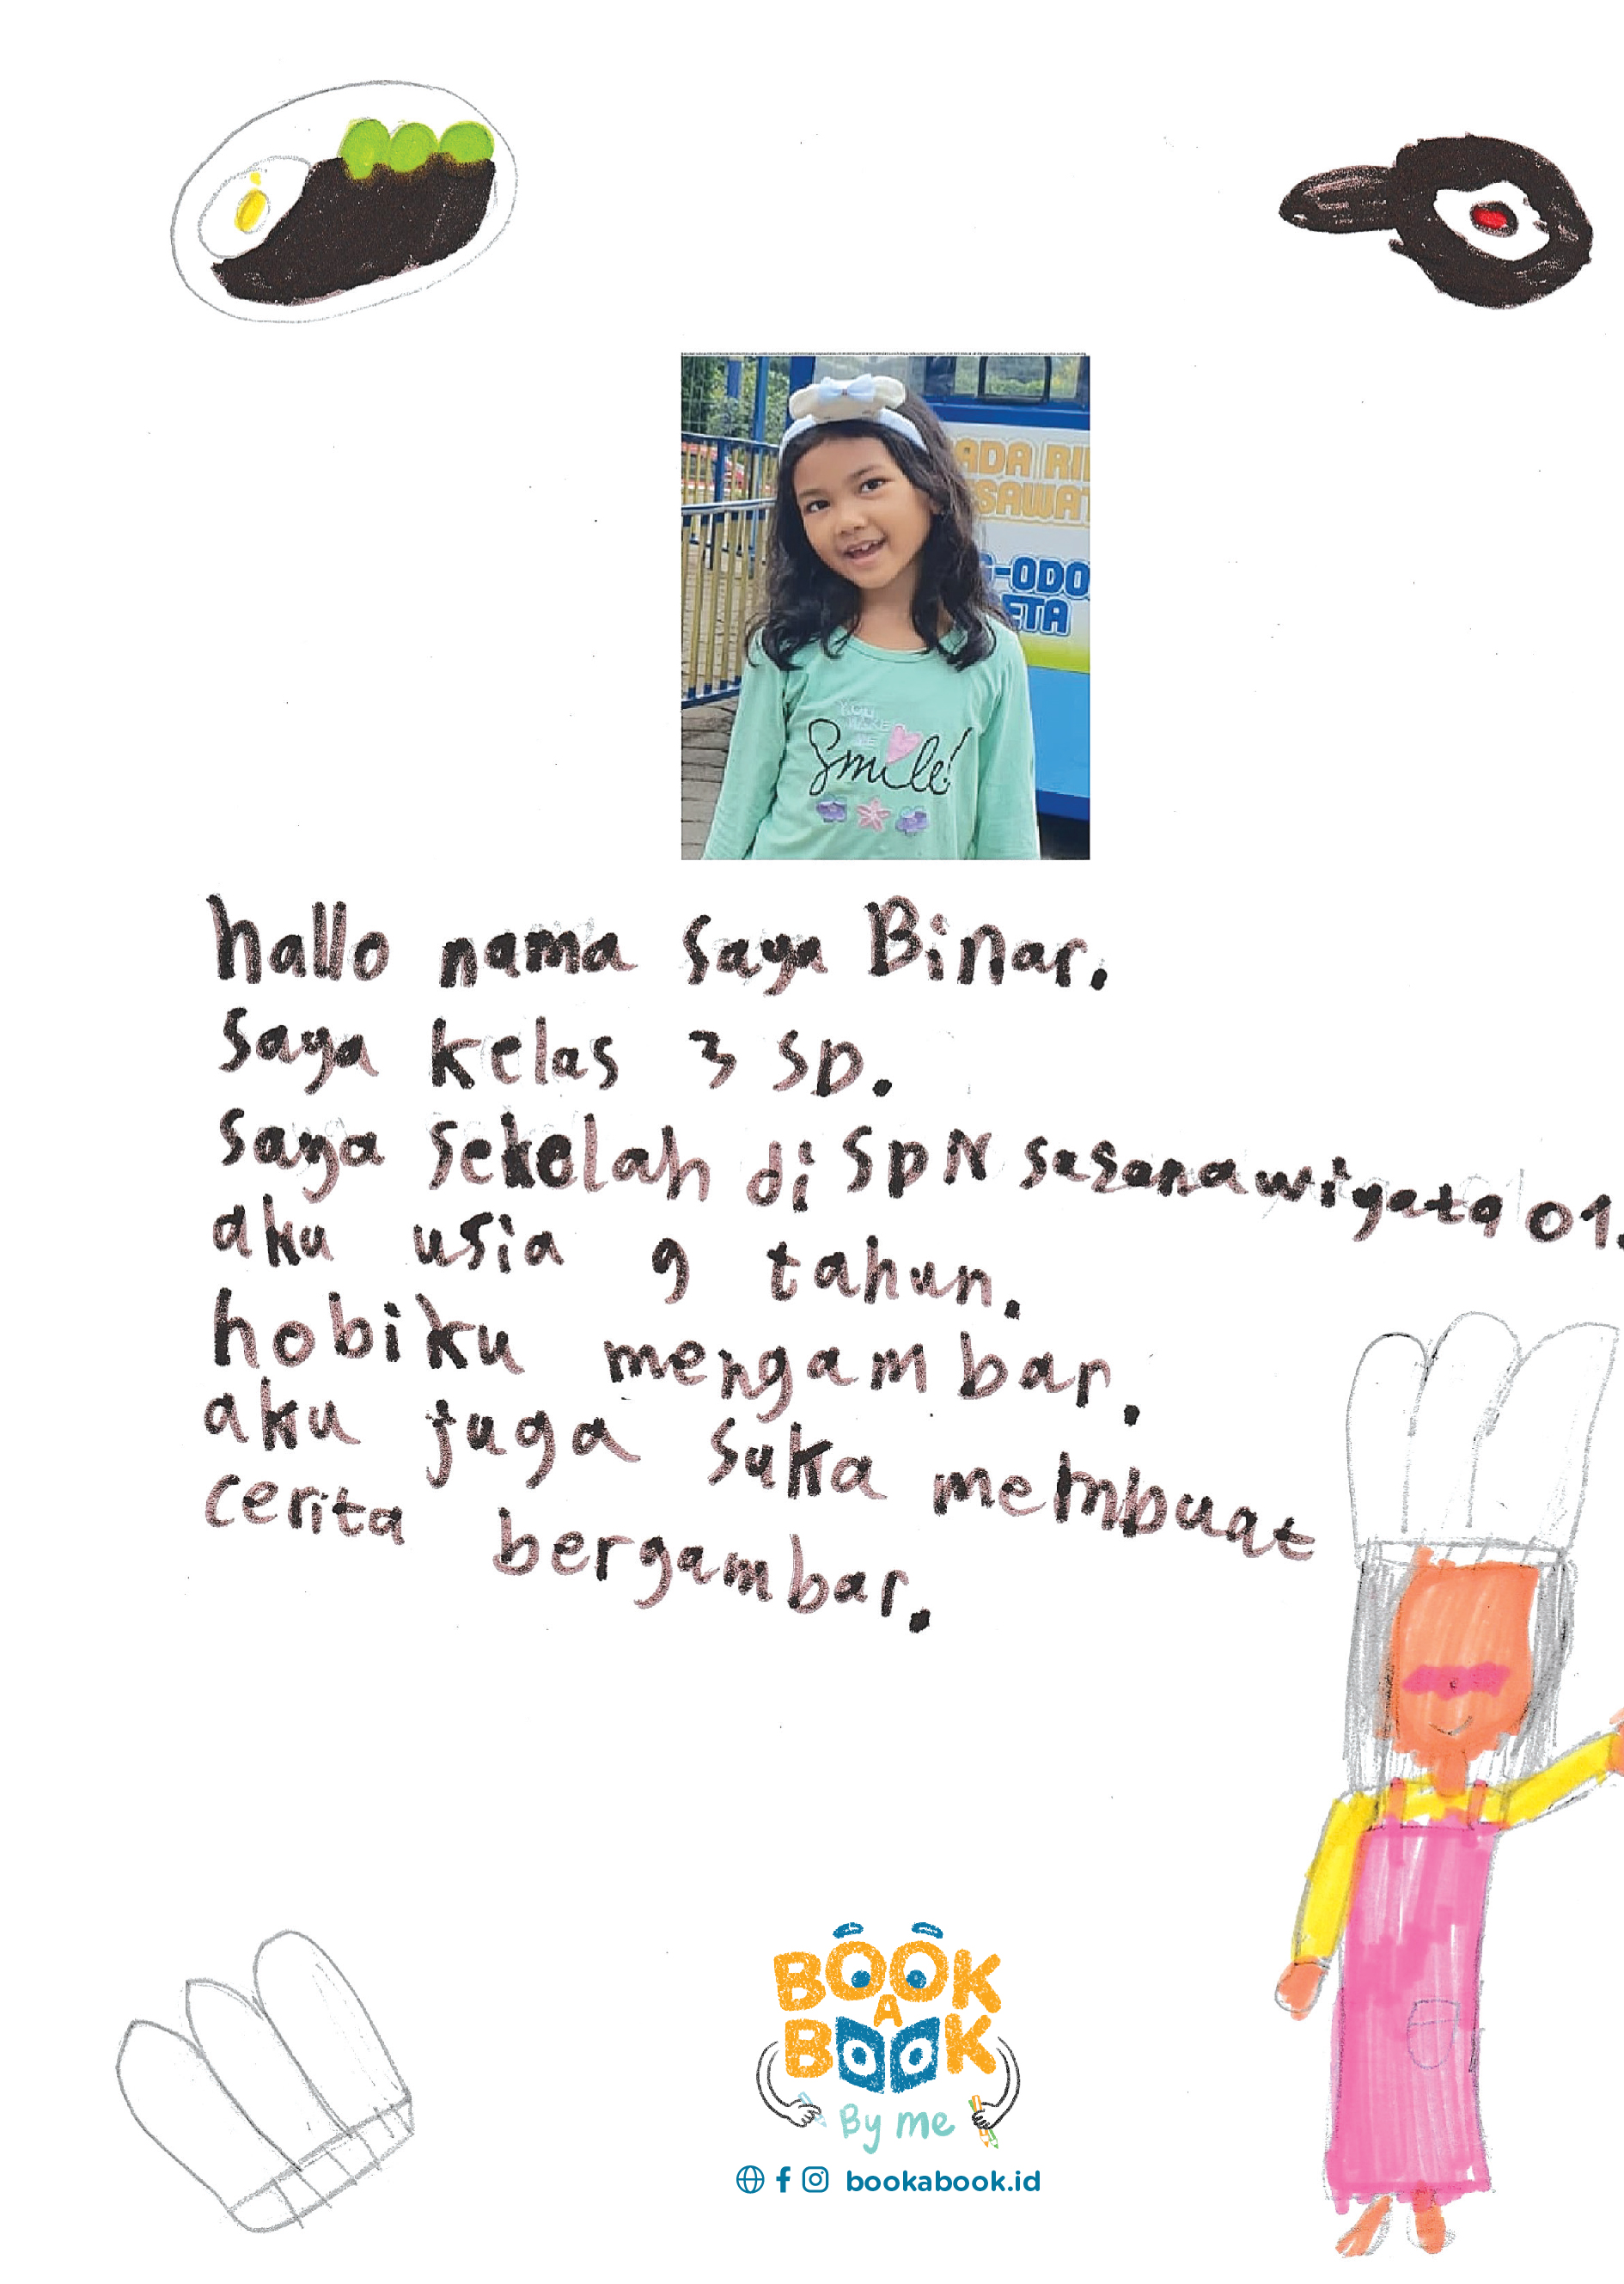 ADA RI
SAWAT
G-ODO
ETA
YOU
MAKE
ME
Smile!
hallo nama saya Binar.
saya kelas 3 SD.
saya sekolah di SDN sasanawiyata 01.
aku usia 9 tahun.
hobiku mengambar.
aku juga suka membuat
cerita bergambar.
BOOK
A
BOOK
By me
bookabook.id